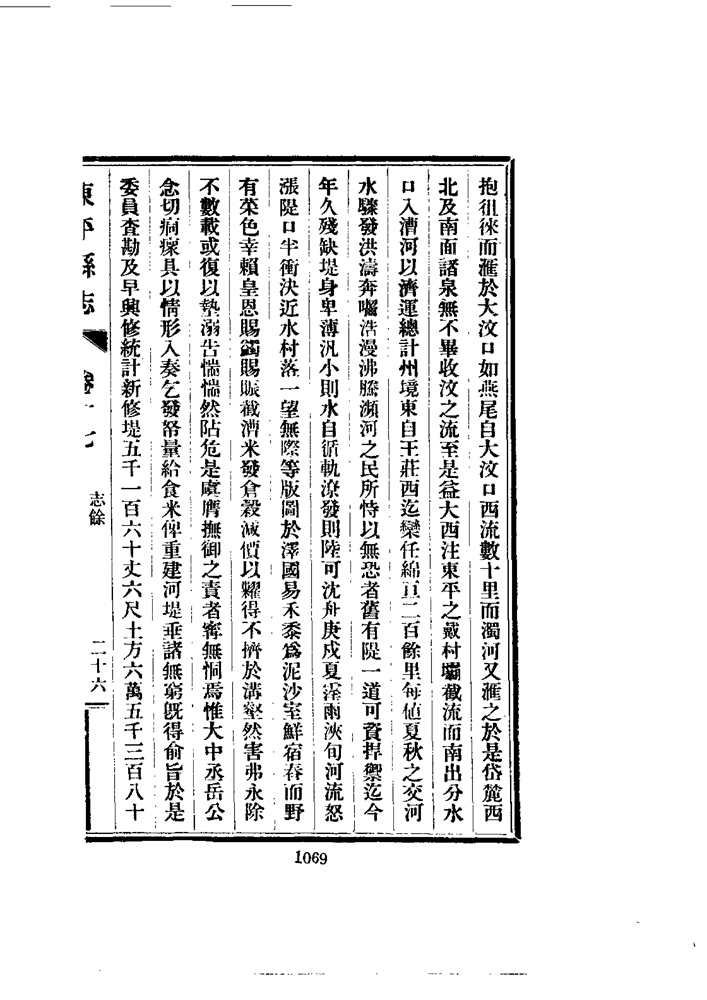 抱徂徠而滙於大汶口如燕尾自大汶口西流數十里而濁河又滙之於是岱麓西
北及南面諸泉無不畢收汶之流至是益大西注東平之戴村壩截流而南出分水
口入漕河以濟運總計州境東自王莊西迄欒任綿亘二百餘里每値夏秋之交河
水驟發洪濤奔囓浩漫沸騰瀕河之民所恃以無恐者舊有隄一道可資捍禦迄今
年久殘缺堤身卑薄汎小則水自循軌潦發則陸可沈舟庚戍夏霪雨浹旬河流怒
漲隄口半衝決近水村落一望無際等版圖於澤國易禾黍爲泥沙室鮮宿舂而野
有菜色幸賴皇恩賜蠲賜賑截漕米發倉穀减價以糶得不擠於溝壑然害弗永除
不數載或復以墊溺告惴惴然阽危是虞膺撫御之責者寗無恫焉惟大中丞岳公
念切痌瘝具以情形入奏乞發帑量給食米俾重建河堤垂諸無窮旣得俞旨於是
委員查勘及早興修統計新修堤五千一百六十丈六尺土方六萬五千三百八十
東平縣志 卷十七 志餘 二十六
1069